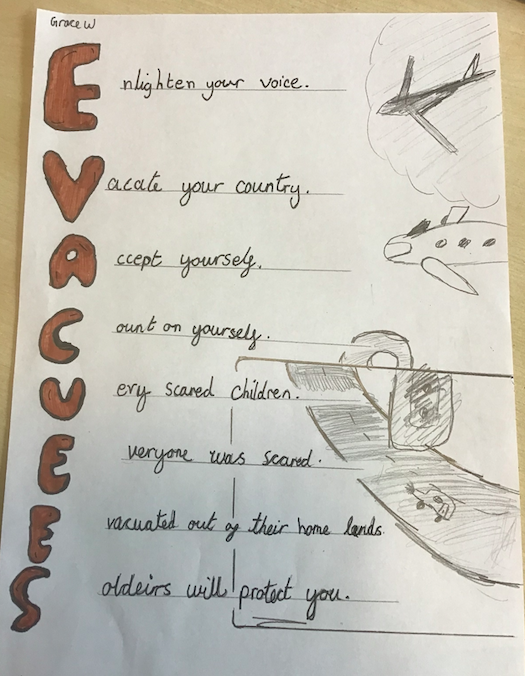 Grace W
Enlighten your voice.
Vacate your country.
Accept yourself.
Count on yourself.
Uery scared children.
Everyone was scared.
Evacuated out of their home lands.
Soldeirs will protect you.